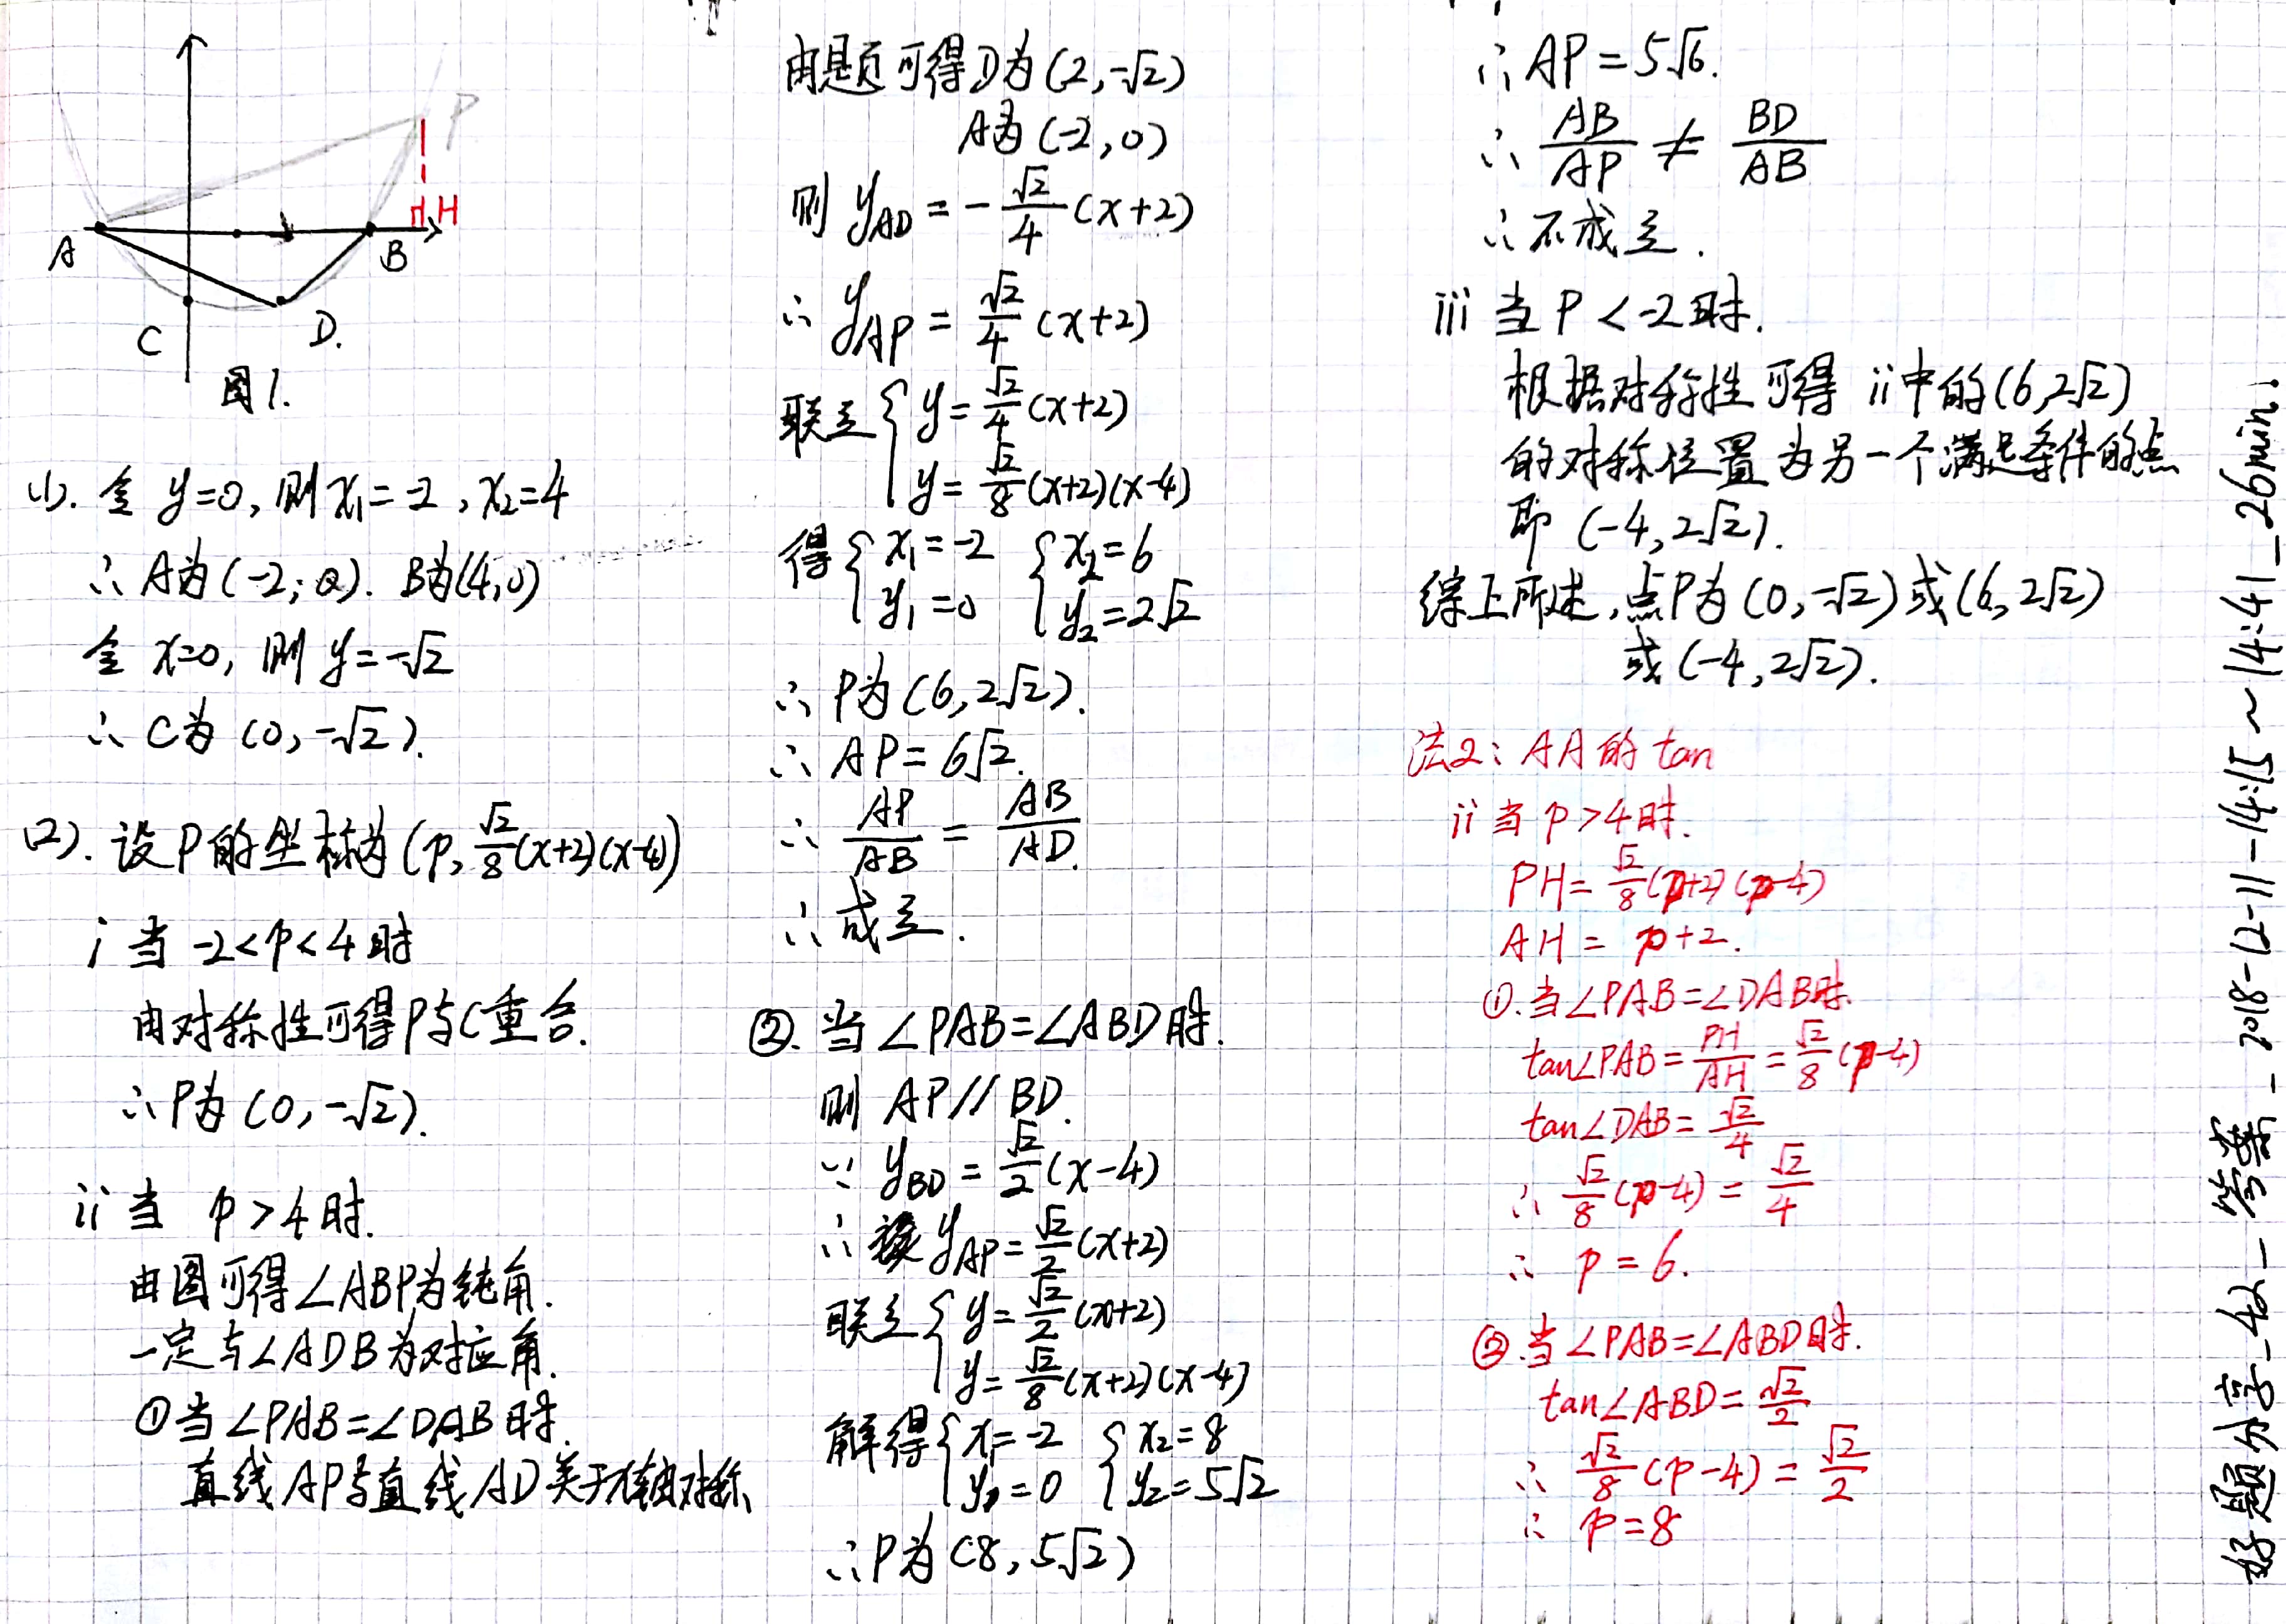 A
B
C
D.
P
H
图1.
(1). 令 y=0, 则 x₁=-2, x₂=4
∴ A为(-2, 0). B为(4,0)
令 x=0, 则 y=-√2
∴ C为 (0, -√2).
(2). 设P的坐标为(p, √2/8(x+2)(x-4))
i 当 -2<p<4时
由对称性可得P与C重合.
∴P为 (0, -√2).
ii 当 p>4时.
由图可得∠ABP为钝角.
一定与∠ADB为对应角.
①当∠PAB=∠DAB时.
直线AP与直线AD关于x轴对称
由题可得D为(2,-√2)
A为(-2,0)
则 y_AD = -√2/4 (x+2)
∴ y_AP = √2/4 (x+2)
联立 { y=√2/4 (x+2)
y=√2/8 (x+2)(x-4)
得 { x₁=-2 { x₂=6
y₁=0 y₂=2√2
∴ P为(6, 2√2).
∴ AP=6√2.
∴ AP/AB = AB/AD.
∴ 成立.
②. 当∠PAB=∠ABD时.
则 AP∥BD.
∵ y_BD = √2/2 (x-4)
∴ y_AP = √2/2 (x+2)
联立 { y=√2/2 (x+2)
y=√2/8 (x+2)(x-4)
解得 { x₁=-2 { x₂=8
y₁=0 y₂=5√2
∴P为(8, 5√2)
∴ AP=5√6.
∴ AB/AP ≠ BD/AB
∴ 不成立.
iii 当P<-2时.
根据对称性可得 ii中的(6,2√2)
的对称位置为另一个满足条件的点
即 (-4, 2√2).
综上所述,点P为(0,-√2)或(6,2√2)
或(-4,2√2).
法2: AA的tan
ii 当p>4时.
PH=√2/8 (p+2)(p-4)
AH= p+2.
①.当∠PAB=∠DAB时.
tan∠PAB=PH/AH=√2/8 (p-4)
tan∠DAB=√2/4
∴ √2/8 (p-4) = √2/4
∴ p=6.
②.当∠PAB=∠ABD时.
tan∠ABD=√2/2
∴ √2/8 (p-4) = √2/2
∴ p=8
好题分享_42_答案_2018-12-11-14:15~14:41_26min.